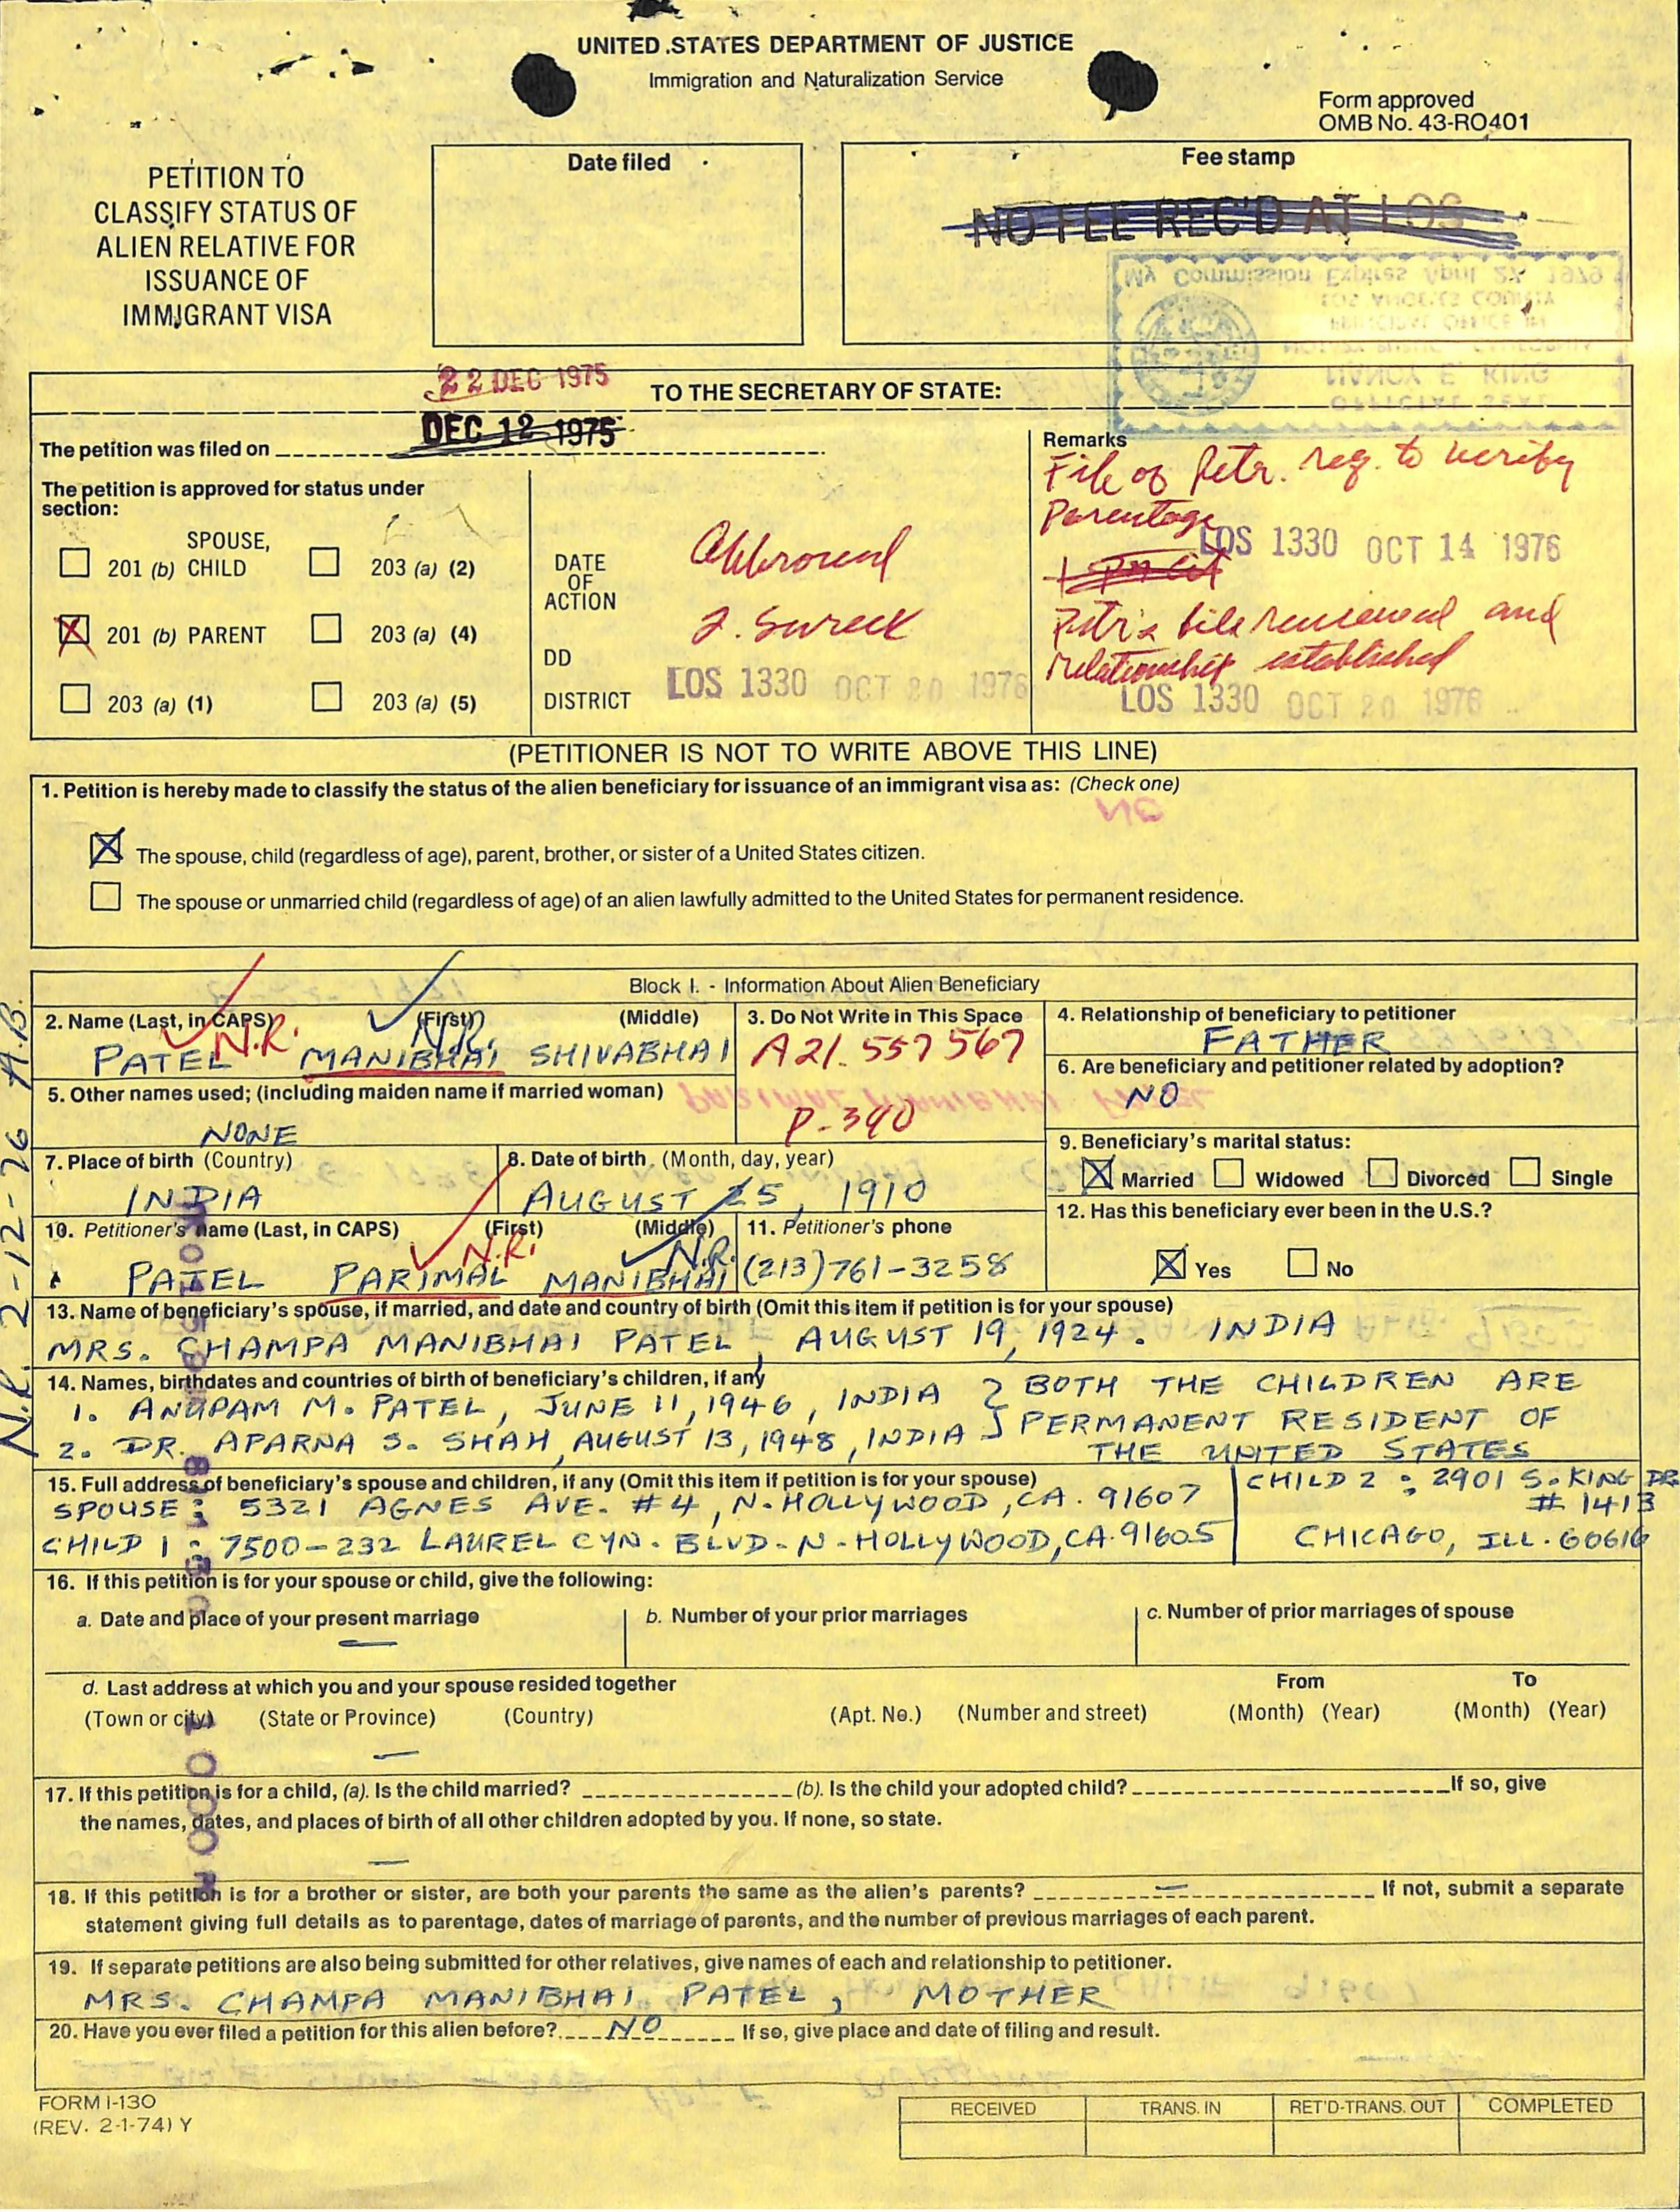 UNITED STATES DEPARTMENT OF JUSTICE
Immigration and Naturalization Service
Form approved
OMB No. 43-RO401
PETITION TO
CLASSIFY STATUS OF
ALIEN RELATIVE FOR
ISSUANCE OF
IMMIGRANT VISA
Date filed
Fee stamp
NO FEE REC'D AT LOS
My Commission Expires April 27, 1979
LOS ANGELES COUNTY
PRINCIPAL OFFICE IN
NANCY E. KING
OFFICIAL SEAL
22 DEC 1975
TO THE SECRETARY OF STATE:
The petition was filed on DEC 12 1975
The petition is approved for status under
section:
SPOUSE,
201 (b) CHILD 203 (a) (2)
201 (b) PARENT 203 (a) (4)
203 (a) (1) 203 (a) (5)
DATE
OF
ACTION
DD
DISTRICT
Approved
LOS 1330 OCT 20 1976
Remarks
File of Petr. req. to verify
Parentage
LOS 1330 OCT 14 1976
Petr's file reviewed and
relationship established
LOS 1330 OCT 20 1976
(PETITIONER IS NOT TO WRITE ABOVE THIS LINE)
1. Petition is hereby made to classify the status of the alien beneficiary for issuance of an immigrant visa as: (Check one)
NO
The spouse, child (regardless of age), parent, brother, or sister of a United States citizen.
The spouse or unmarried child (regardless of age) of an alien lawfully admitted to the United States for permanent residence.
N.R. 2-12-76 A.B.
Block I. - Information About Alien Beneficiary
2. Name (Last, in CAPS) (First) (Middle)
N.R. N.R.
PATEL MANIBHAI SHIVABHAI
3. Do Not Write in This Space
A21. 557 567
P-340
4. Relationship of beneficiary to petitioner
FATHER
5. Other names used; (including maiden name if married woman)
NONE
PARIMAL MANIBHAI PATEL
6. Are beneficiary and petitioner related by adoption?
NO
7. Place of birth (Country)
INDIA
8. Date of birth (Month, day, year)
AUGUST 25, 1910
9. Beneficiary's marital status:
Married Widowed Divorced Single
10. Petitioner's name (Last, in CAPS) (First) (Middle)
N.R. N.R.
PATEL PARIMAL MANIBHAI
11. Petitioner's phone
(213)761-3258
12. Has this beneficiary ever been in the U.S.?
Yes No
13. Name of beneficiary's spouse, if married, and date and country of birth (Omit this item if petition is for your spouse)
MRS. CHAMPA MANIBHAI PATEL, AUGUST 19, 1924. INDIA
14. Names, birthdates and countries of birth of beneficiary's children, if any
1. ANUPAM M. PATEL, JUNE 11, 1946, INDIA
2. DR. APARNA S. SHAH, AUGUST 13, 1948, INDIA
BOTH THE CHILDREN ARE
PERMANENT RESIDENT OF
THE UNITED STATES
15. Full address of beneficiary's spouse and children, if any (Omit this item if petition is for your spouse)
SPOUSE: 5321 AGNES AVE. #4, N. HOLLYWOOD, CA. 91607
CHILD 1: 7500-232 LAUREL CYN. BLVD. N. HOLLYWOOD, CA. 91605
CHILD 2: 2901 S. KING DR.
# 1413
CHICAGO, ILL. 60616
16. If this petition is for your spouse or child, give the following:
a. Date and place of your present marriage
b. Number of your prior marriages
c. Number of prior marriages of spouse
d. Last address at which you and your spouse resided together From To
(Town or city) (State or Province) (Country) (Apt. No.) (Number and street) (Month) (Year) (Month) (Year)
17. If this petition is for a child, (a). Is the child married? (b). Is the child your adopted child? If so, give
the names, dates, and places of birth of all other children adopted by you. If none, so state.
18. If this petition is for a brother or sister, are both your parents the same as the alien's parents? If not, submit a separate
statement giving full details as to parentage, dates of marriage of parents, and the number of previous marriages of each parent.
19. If separate petitions are also being submitted for other relatives, give names of each and relationship to petitioner.
MRS. CHAMPA MANIBHAI PATEL, MOTHER
20. Have you ever filed a petition for this alien before? NO If so, give place and date of filing and result.
FORM I-130
(REV. 2-1-74) Y
RECEIVED TRANS. IN RET'D-TRANS. OUT COMPLETED